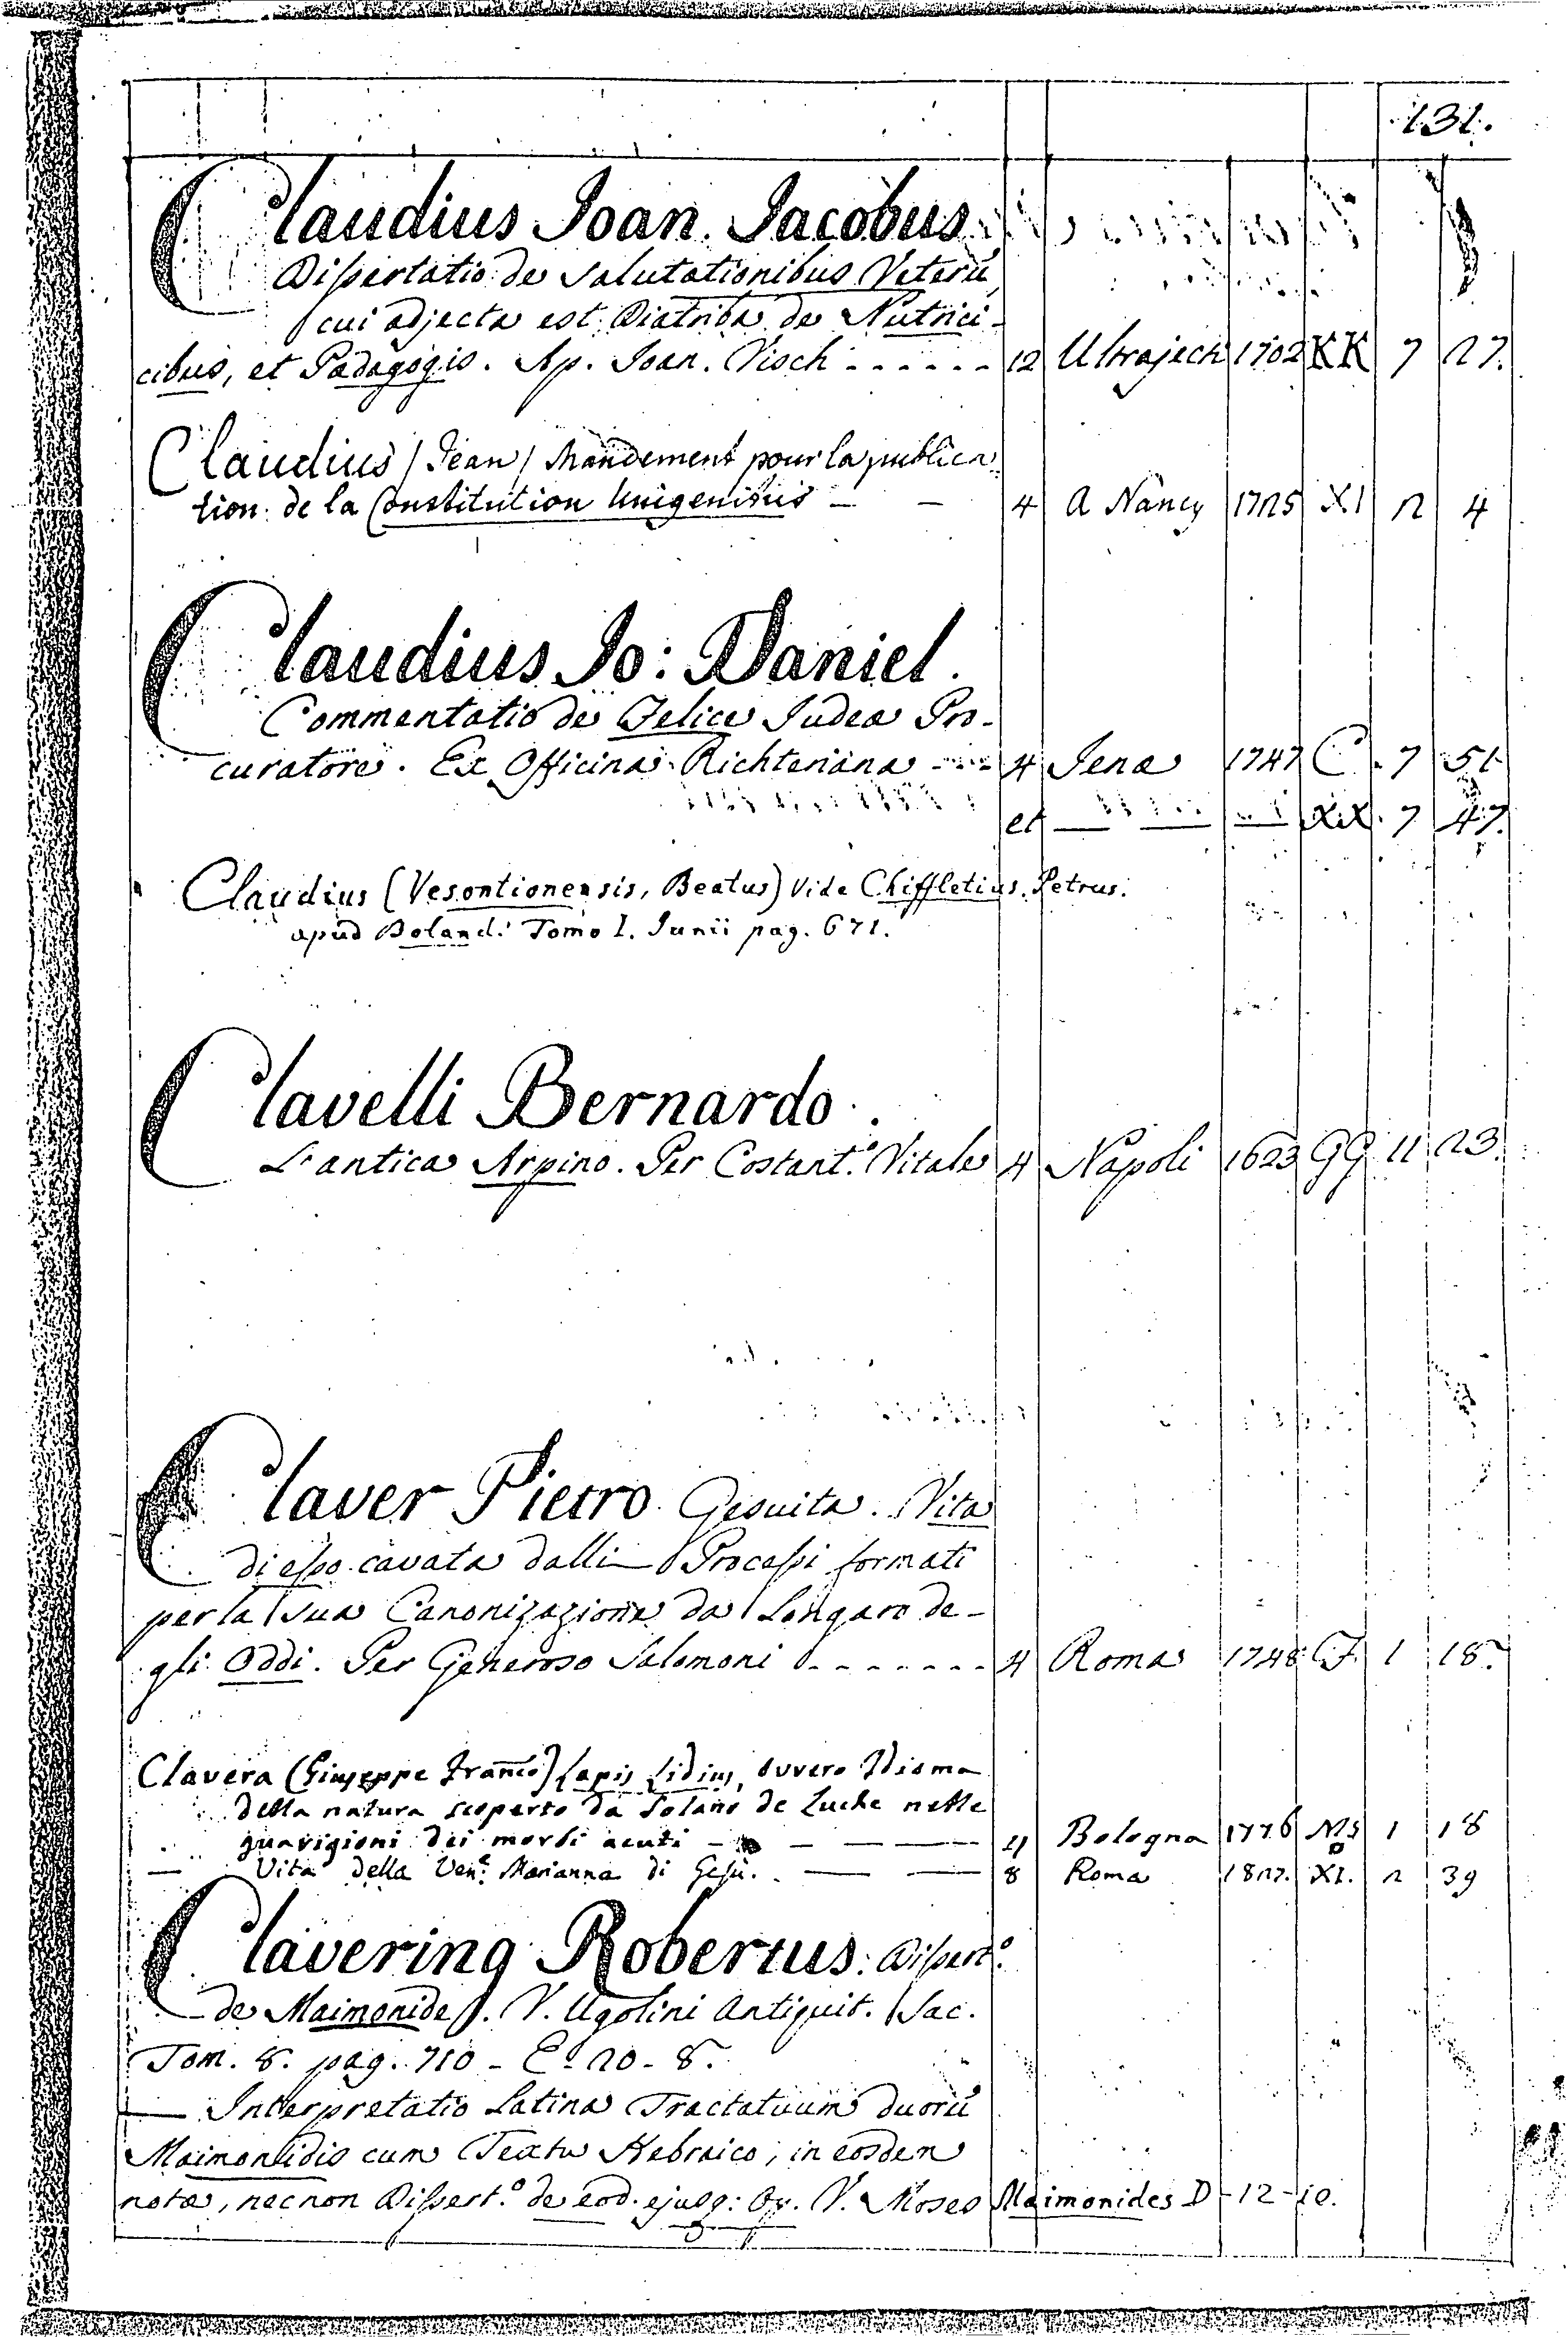 131.
Claudius Joan. Jacobus
Dissertatio de Salutationibus Veterū,
cui adjecta est Diatriba de Nutrici-
cibus, et Pædagogis. Ap. Joan. Visch ------ 12 Ultrajecti 1702 KK 7 27.
Claudius /Jean/ Mandement pour la publica
tion de la Constitution Unigenitus — — 4 A Nancy 1725 XI 2 4
Claudius Jo: Daniel.
Commentatio de Felice Judeæ Pro-
curatore. Ex Officina Richteriana ---- 4 Jenæ 1747 C. 7 51.
et — — XiX. 7 47.
Claudius (Vesontionensis, Beatus) Vide Chiffletius Petrus.
apud Boland: Tomo I. Junii pag. 671.
Clavelli Bernardo.
L'antica Arpino. Per Costant.º Vitale 4 Napoli 1623 GG 11 23.
Claver Pietro Gesuita. Vita
di esso cavata dalli Processi formati
per la sua Canonizazione da Longaro de-
gli Oddi. Per Generoso Salomoni ------- 4 Roma 1748 CF. 1 18.
Clavera (Giuseppe Franco) Lapis Lidius, ovvero
della natura scoperto da Solano de Luche nelle
guarigioni dei morbi acuti — — — 4 Bologna 1776 Ms 1 18
— Vita della Ven.e Marianna di Gesù. — — 8 Roma 1827. XI. 2 39
Clavering Robertus. Dissert.º
de Maimonide. V. Ugolini Antiquit. Sac.
Tom. 8. pag. 710 - Eª 20 - 8.
— Interpretatio Latina Tractatuum duorū
Maimonidis cum Textu Hebraico, in eosdem
notæ, necnon Dissert.º de eod. ejusq: Op. V. Moses Maimonides D - 12 - 10.